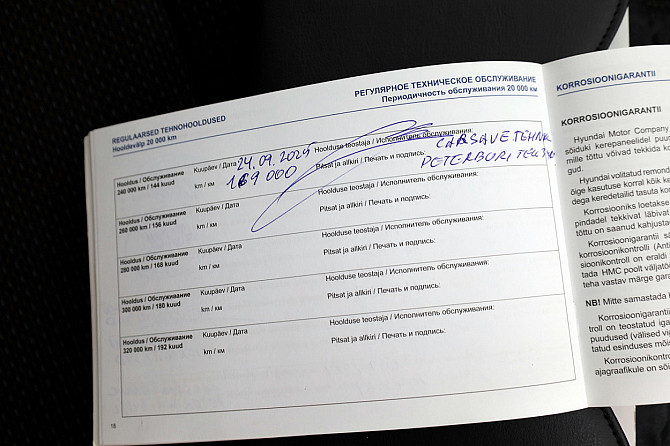 REGULAARSED TEHNOHOOLDUSED
Hooldevälp 20 000 km
РЕГУЛЯРНОЕ ТЕХНИЧЕСКОЕ ОБСЛУЖИВАНИЕ
Периодичность обслуживания 20 000 км
Hooldus / Обслуживание
240 000 km / 144 kuud
Kuupäev / Дата 24.09.2025
km / км 169 000
Hoolduse teostaja / Исполнитель обслуживания:
Pitsat ja allkiri / Печать и подпись:
CARSAVE TEHNIK
PETERBURI TEE
Hooldus / Обслуживание
260 000 km / 156 kuud
Kuupäev / Дата
km / км
Hoolduse teostaja / Исполнитель обслуживания:
Pitsat ja allkiri / Печать и подпись:
Hooldus / Обслуживание
280 000 km / 168 kuud
Kuupäev / Дата
km / км
Hoolduse teostaja / Исполнитель обслуживания:
Pitsat ja allkiri / Печать и подпись:
Hooldus / Обслуживание
300 000 km / 180 kuud
Kuupäev / Дата
km / км
Hoolduse teostaja / Исполнитель обслуживания:
Pitsat ja allkiri / Печать и подпись:
Hooldus / Обслуживание
320 000 km / 192 kuud
Kuupäev / Дата
km / км
Hoolduse teostaja / Исполнитель обслуживания:
Pitsat ja allkiri / Печать и подпись:
18
KORROSIOONIGARANTII
KORROSIOONIGARANTII
Hyundai Motor Company
sõiduki kerepaneelidel puud
mille tõttu võivad tekkida k
gud.
Hyundai volitatud remond
õige kasutuse korral kõik ke
dega keredetailid tasuta ko
Korrosiooniks loetakse
pindadel tekkivat läbivat
tõttu on saanud kahjusta
Korrosioonigarantii sä
korrosioonikontrolli (Anti
sioonikontroll on eraldi
tada HMC poolt väljatöö
teha vastav märge gara
NB! Mitte samastada
Korrosioonigarantii
troll on teostatud iga
puudused (välised vig
tatud esinduses mõis
Korrosioonikontroll
ajagraafikule on sõi